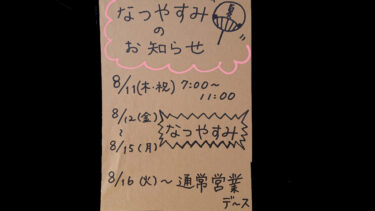 なつやすみ
の
お知らせ
8/11(木・祝) 7:00〜
11:00
8/12(金)
〜
8/15(月)
なつやすみ
8/16(火)〜通常営業
デース